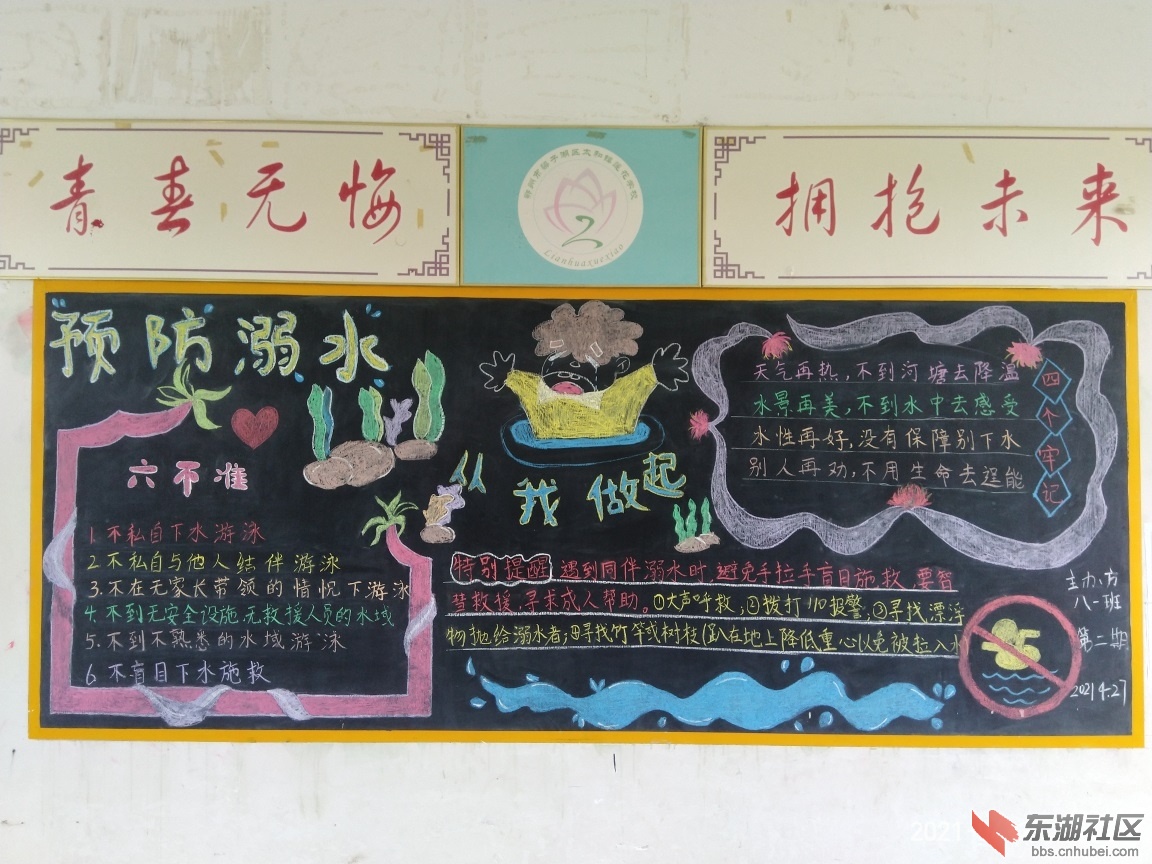 青春无悔
鄂州市梁子湖区太和镇莲花学校
Lianhuaxuexiao
拥抱未来
预防溺水
从我做起
六不准
1.不私自下水游泳
2.不私自与他人结伴游泳
3.不在无家长带领的情况下游泳
4.不到无安全设施,无救援人员的水域
5.不到不熟悉的水域游泳
6.不盲目下水施救
四个牢记
天气再热,不到河塘去降温
水景再美,不到水中去感受
水性再好,没有保障别下水
别人再劝,不用生命去逞能
特别提醒 遇到同伴溺水时,避免手拉手盲目施救,要智
慧救援,寻求成人帮助。①大声呼救,②拨打110报警,③寻找漂浮
物抛给溺水者;④寻找竹竿或树枝(趴在地上降低重心以免被拉入水
主办方
八一班
第二期
2021 4.27
2021
东湖社区
bbs.cnhubei.com